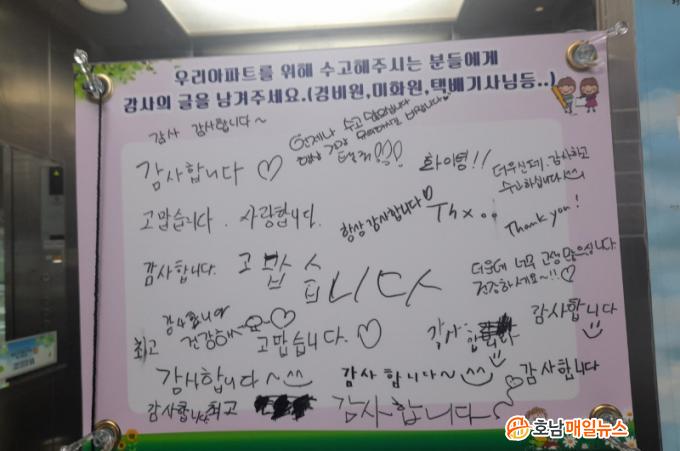 우리아파트를 위해 수고해주시는 분들에게
감사의 글을 남겨주세요.(경비원,미화원,택배기사님등..)
감사 감사합니다~
언제나 수고 많으십니다
항상 건강
감사합니다 ♡
화이팅!!
더우신데 감사하고
수고하십니다
고맙습니다. 사랑합니다.
항상 감사합니다♡
Thx..
Thank you!
감사합니다.
고맙습니다
더운데 너무 고생 많으십니다.
건강하세요~!!♡
감사합니다
최고 건강해
고맙습니다. ♡
감사
합니다
감사합니다
감사합니다~^^
감사합니다~
감사합니다
감사합니다 최고
감사합니다
호남매일뉴스